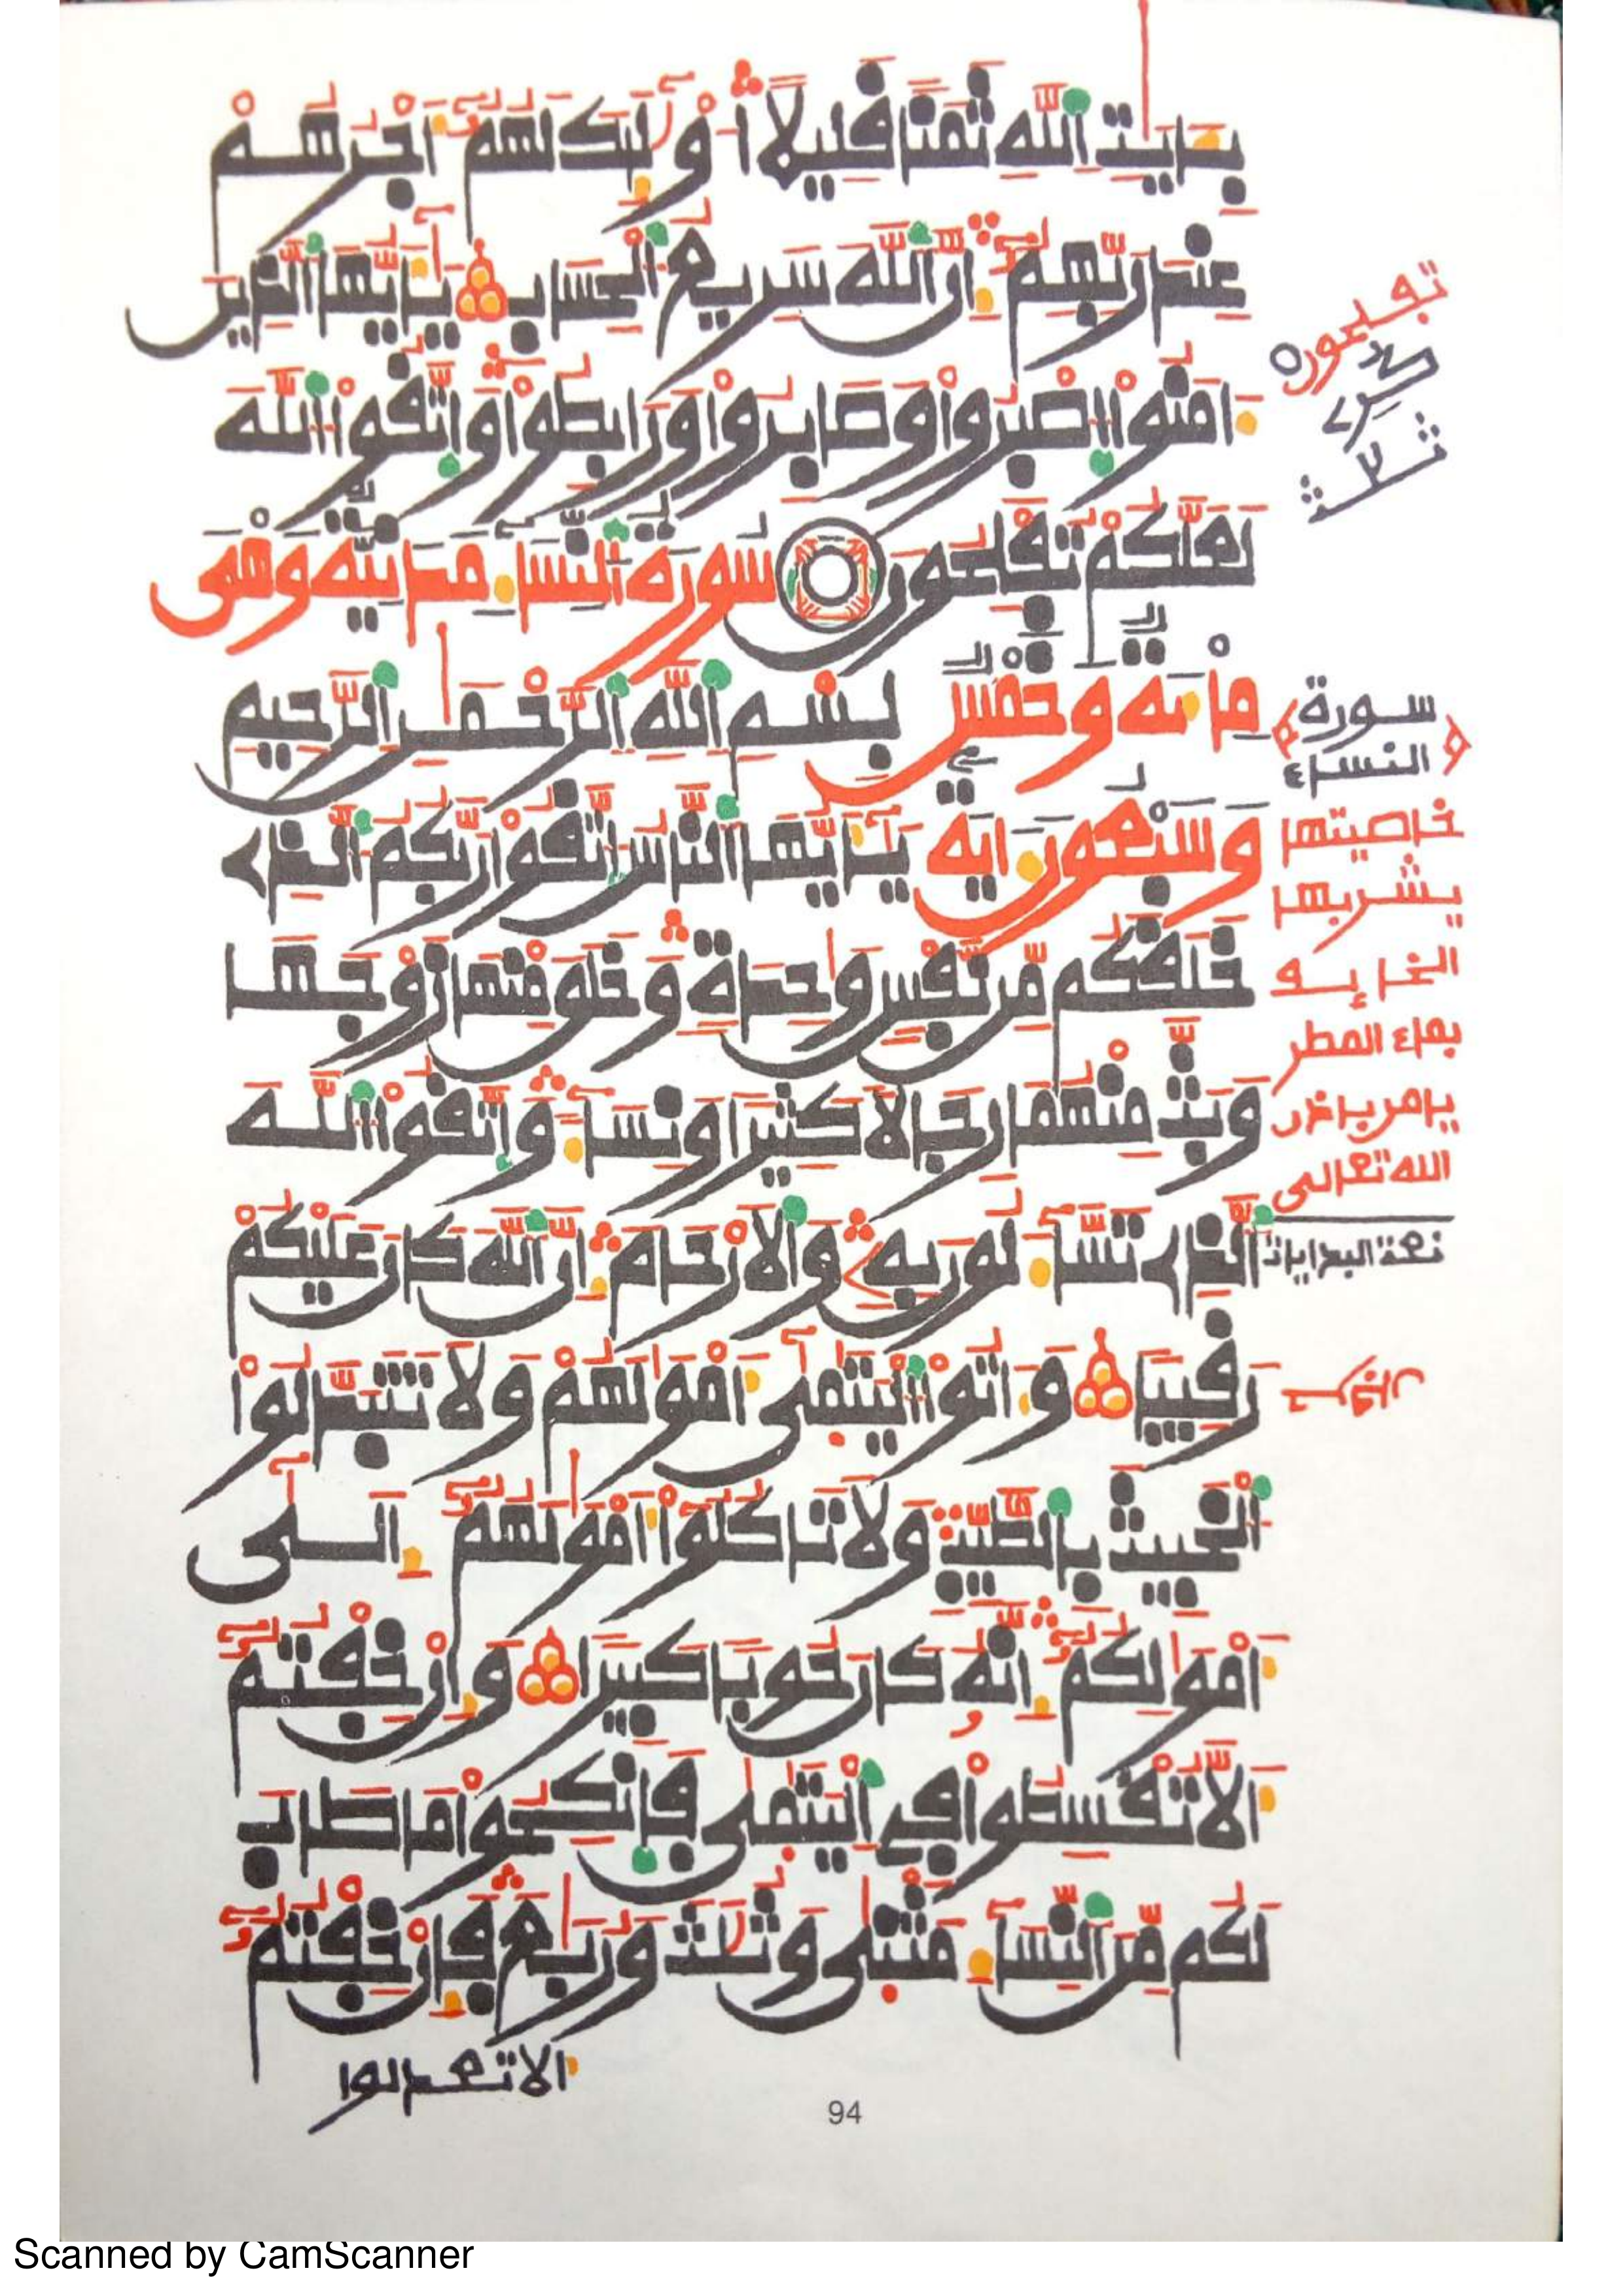 بِـَٔايَٰتِ اِ۬للَّهِ ثَمَناٗ قَلِيلاً ا۟وْلَٰٓئِكَ لَهُمُۥٓ أَجْرُهُمْ
عِندَ رَبِّهِمُۥٓ إِنَّ اَ۬للَّهَ سَرِيعُ اُ۬لْحِسَابِ يَٰٓأَيُّهَا اَ۬لذِينَ
ءَامَنُواْ اُ۪صْبِرُواْ وَصَابِرُواْ وَرَابِطُواْ وَاتَّقُواْ اُ۬للَّهَ
لَعَلَّكُمْ تُفْلِحُونَ سُورَةُ اُ۬لنِّسَآءِ مَدَنِيَّةٌ وَهْىَ
مِاْئَةٌ وَخَمْسٌ بِسْمِ اِ۬للَّهِ اِ۬لرَّحْمَٰنِ اِ۬لرَّحِيمِ
وَسَبْعُونَ ءَايَةً يَٰٓأَيُّهَا اَ۬لنَّاسُ اُ۪تَّقُواْ رَبَّكُمُ اُ۬لذِے
خَلَقَكُم مِّن نَّفْسٖ وَٰحِدَةٖ وَخَلَقَ مِنْهَا زَوْجَهَا
وَبَثَّ مِنْهُمَا رِجَالاٗ كَثِيراٗ وَنِسَآءٗ وَاتَّقُواْ اُ۬للَّهَ
اَ۬لذِے تَسَّآءَلُونَ بِهِۦ وَالَارْحَامَ إِنَّ اَ۬للَّهَ كَانَ عَلَيْكُمْ
رَقِيباٗ وَءَاتُواْ اُ۬لْيَتَٰمَىٰٓ أَمْوَٰلَهُمْ وَلَا تَتَبَدَّلُواْ
اُ۬لْخَبِيثَ بِالطَّيِّبِ وَلَا تَاكُلُوٓاْ أَمْوَٰلَهُمُۥٓ إِلَىٰٓ
أَمْوَٰلِكُمُۥٓ إِنَّهُۥ كَانَ حُوباٗ كَبِيراٗ وَإِنْ خِفْتُمُۥٓ
أَلَّا تُقْسِطُواْ فِے اِ۬لْيَتَٰمَىٰ فَانكِحُواْ مَا طَابَ
لَكُم مِّنَ اَ۬لنِّسَآءِ مَثْنَىٰ وَثُلَٰثَ وَرُبَٰعَ فَإِنْ خِفْتُمُۥٓ
ألا تعدلوا
تفلحون
ثلث
سورة
النساء
خاصيتها
يشربها
بماء المطر
الله تعالى
94
Scanned by CamScanner